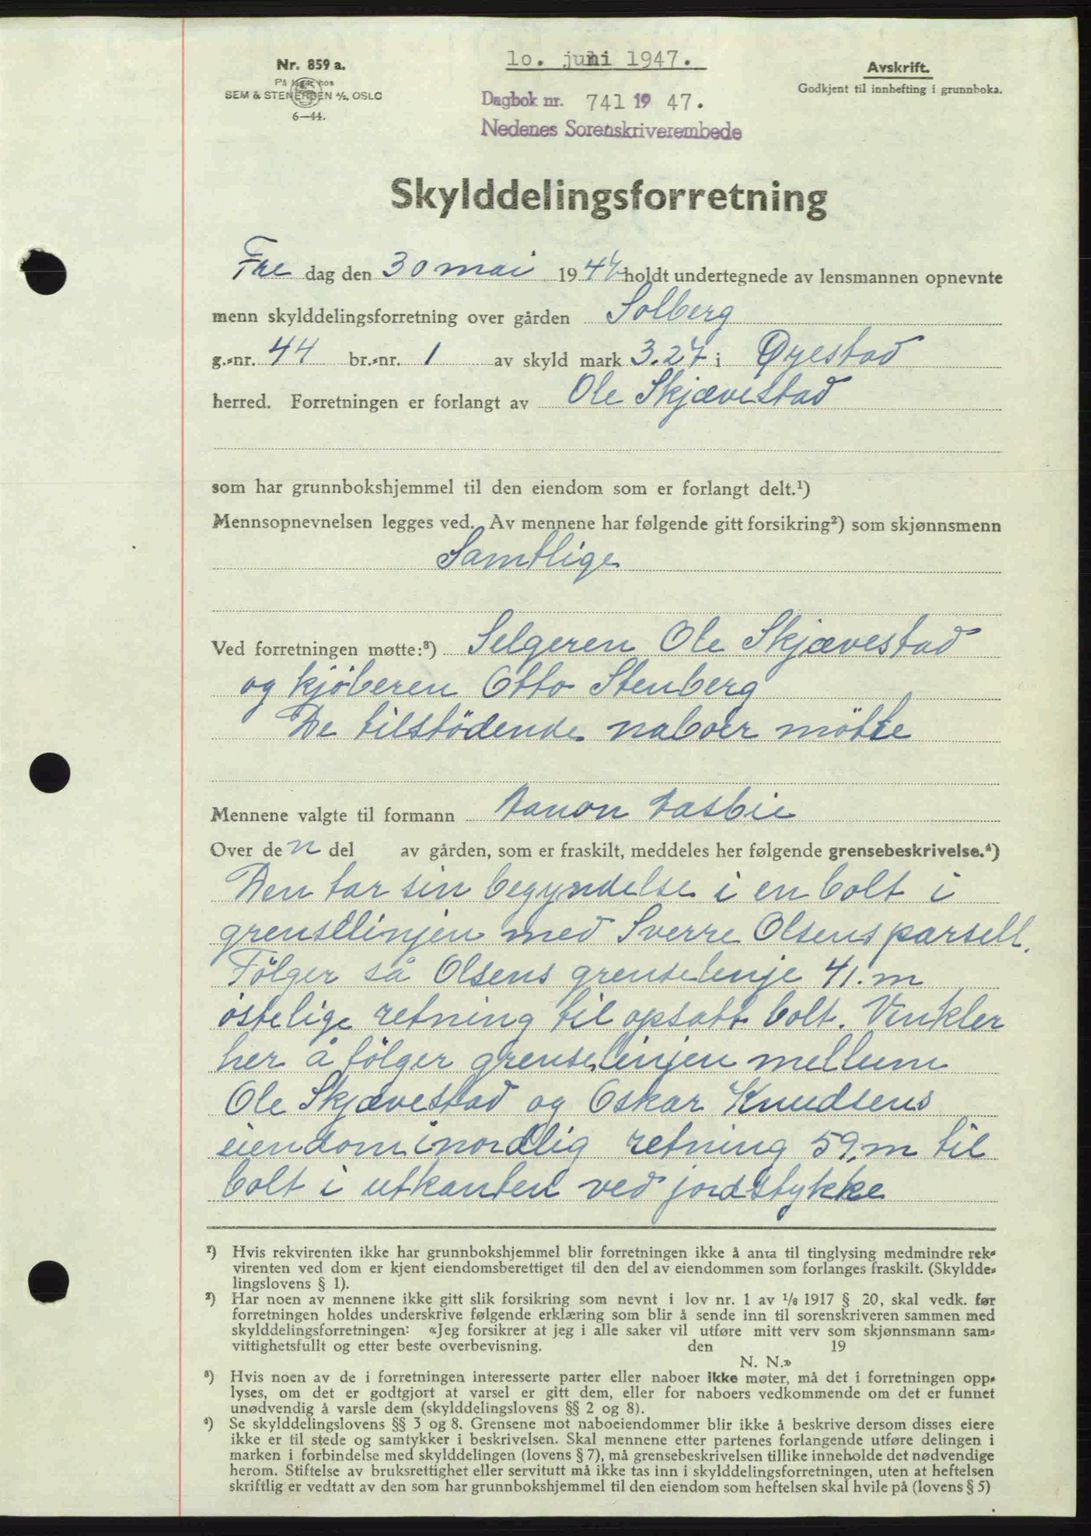 Nr. 859 a.
På lager hos
SEM & STENERSEN A/S, OSLO
6—44.
10. juni 1947.
Dagbok nr. 741 19 47.
Nedenes Sorenskriverembede
Avskrift.
Godkjent til innhefting i grunnboka.
Skylddelingsforretning
Fre dag den 30 mai 1947 holdt undertegnede av lensmannen opnevnte
menn skylddelingsforretning over gården Solberg
g.-nr. 44 br.-nr. 1 av skyld mark 3.27 i Øyestad
herred. Forretningen er forlangt av Ole Skjævestad
som har grunnbokshjemmel til den eiendom som er forlangt delt.¹)
Mennsopnevnelsen legges ved. Av mennene har følgende gitt forsikring²) som skjønnsmenn
Samtlige
Ved forretningen møtte:³) Selgeren Ole Skjævestad
og kjöberen Otto Stenberg
De tilstödende naboer mötte
Mennene valgte til formann
Over den del av gården, som er fraskilt, meddeles her følgende grensebeskrivelse.⁴)
Den tar sin begyndelse i en bolt i
grenselinjen med Sverre Olsens parsell.
Følger så Olsens grenselinje 41. m
östelige retning til opsatt bolt. Vinkler
her å fölger grenselinjen mellem
Ole Skjævestad og Oskar Knudsens
eiendom i nordlig retning 59. m til
bolt i utkanten ved jordstykke
¹) Hvis rekvirenten ikke har grunnbokshjemmel blir forretningen ikke å anta til tinglysing medmindre rek-
virenten ved dom er kjent eiendomsberettiget til den del av eiendommen som forlanges fraskilt. (Skyldde-
lingslovens § 1).
²) Har noen av mennene ikke gitt slik forsikring som nevnt i lov nr. 1 av 1/6 1917 § 20, skal vedk. før
forretningen holdes underskrive følgende erklæring som blir å sende inn til sorenskriveren sammen med
skylddelingsforretningen: «Jeg forsikrer at jeg i alle saker vil utføre mitt verv som skjønnsmann sam-
vittighetsfullt og etter beste overbevisning. den 19
N. N.»
³) Hvis noen av de i forretningen interesserte parter eller naboer ikke møter, må det i forretningen opp-
lyses, om det er godtgjort at varsel er gitt dem, eller for naboers vedkommende om det er funnet
unødvendig å varsle dem (skylddelingslovens §§ 2 og 8).
⁴) Se skylddelingslovens §§ 3 og 8. Grensene mot naboeiendommer blir ikke å beskrive dersom disses eiere
ikke er til stede og samtykker i beskrivelsen. Skal mennene etter partenes forlangende utføre delingen i
marken i forbindelse med skylddelingen (lovens § 7), må grensebeskrivelsen tillike inneholde det nødvendige
herom. Stiftelse av bruksrettighet eller servitutt må ikke tas inn i skylddelingsforretningen, uten at heftelsen
skriftlig er vedtatt av den som har grunnbokshjemmel til den eiendom som heftelsen skal hvile på (lovens § 5)